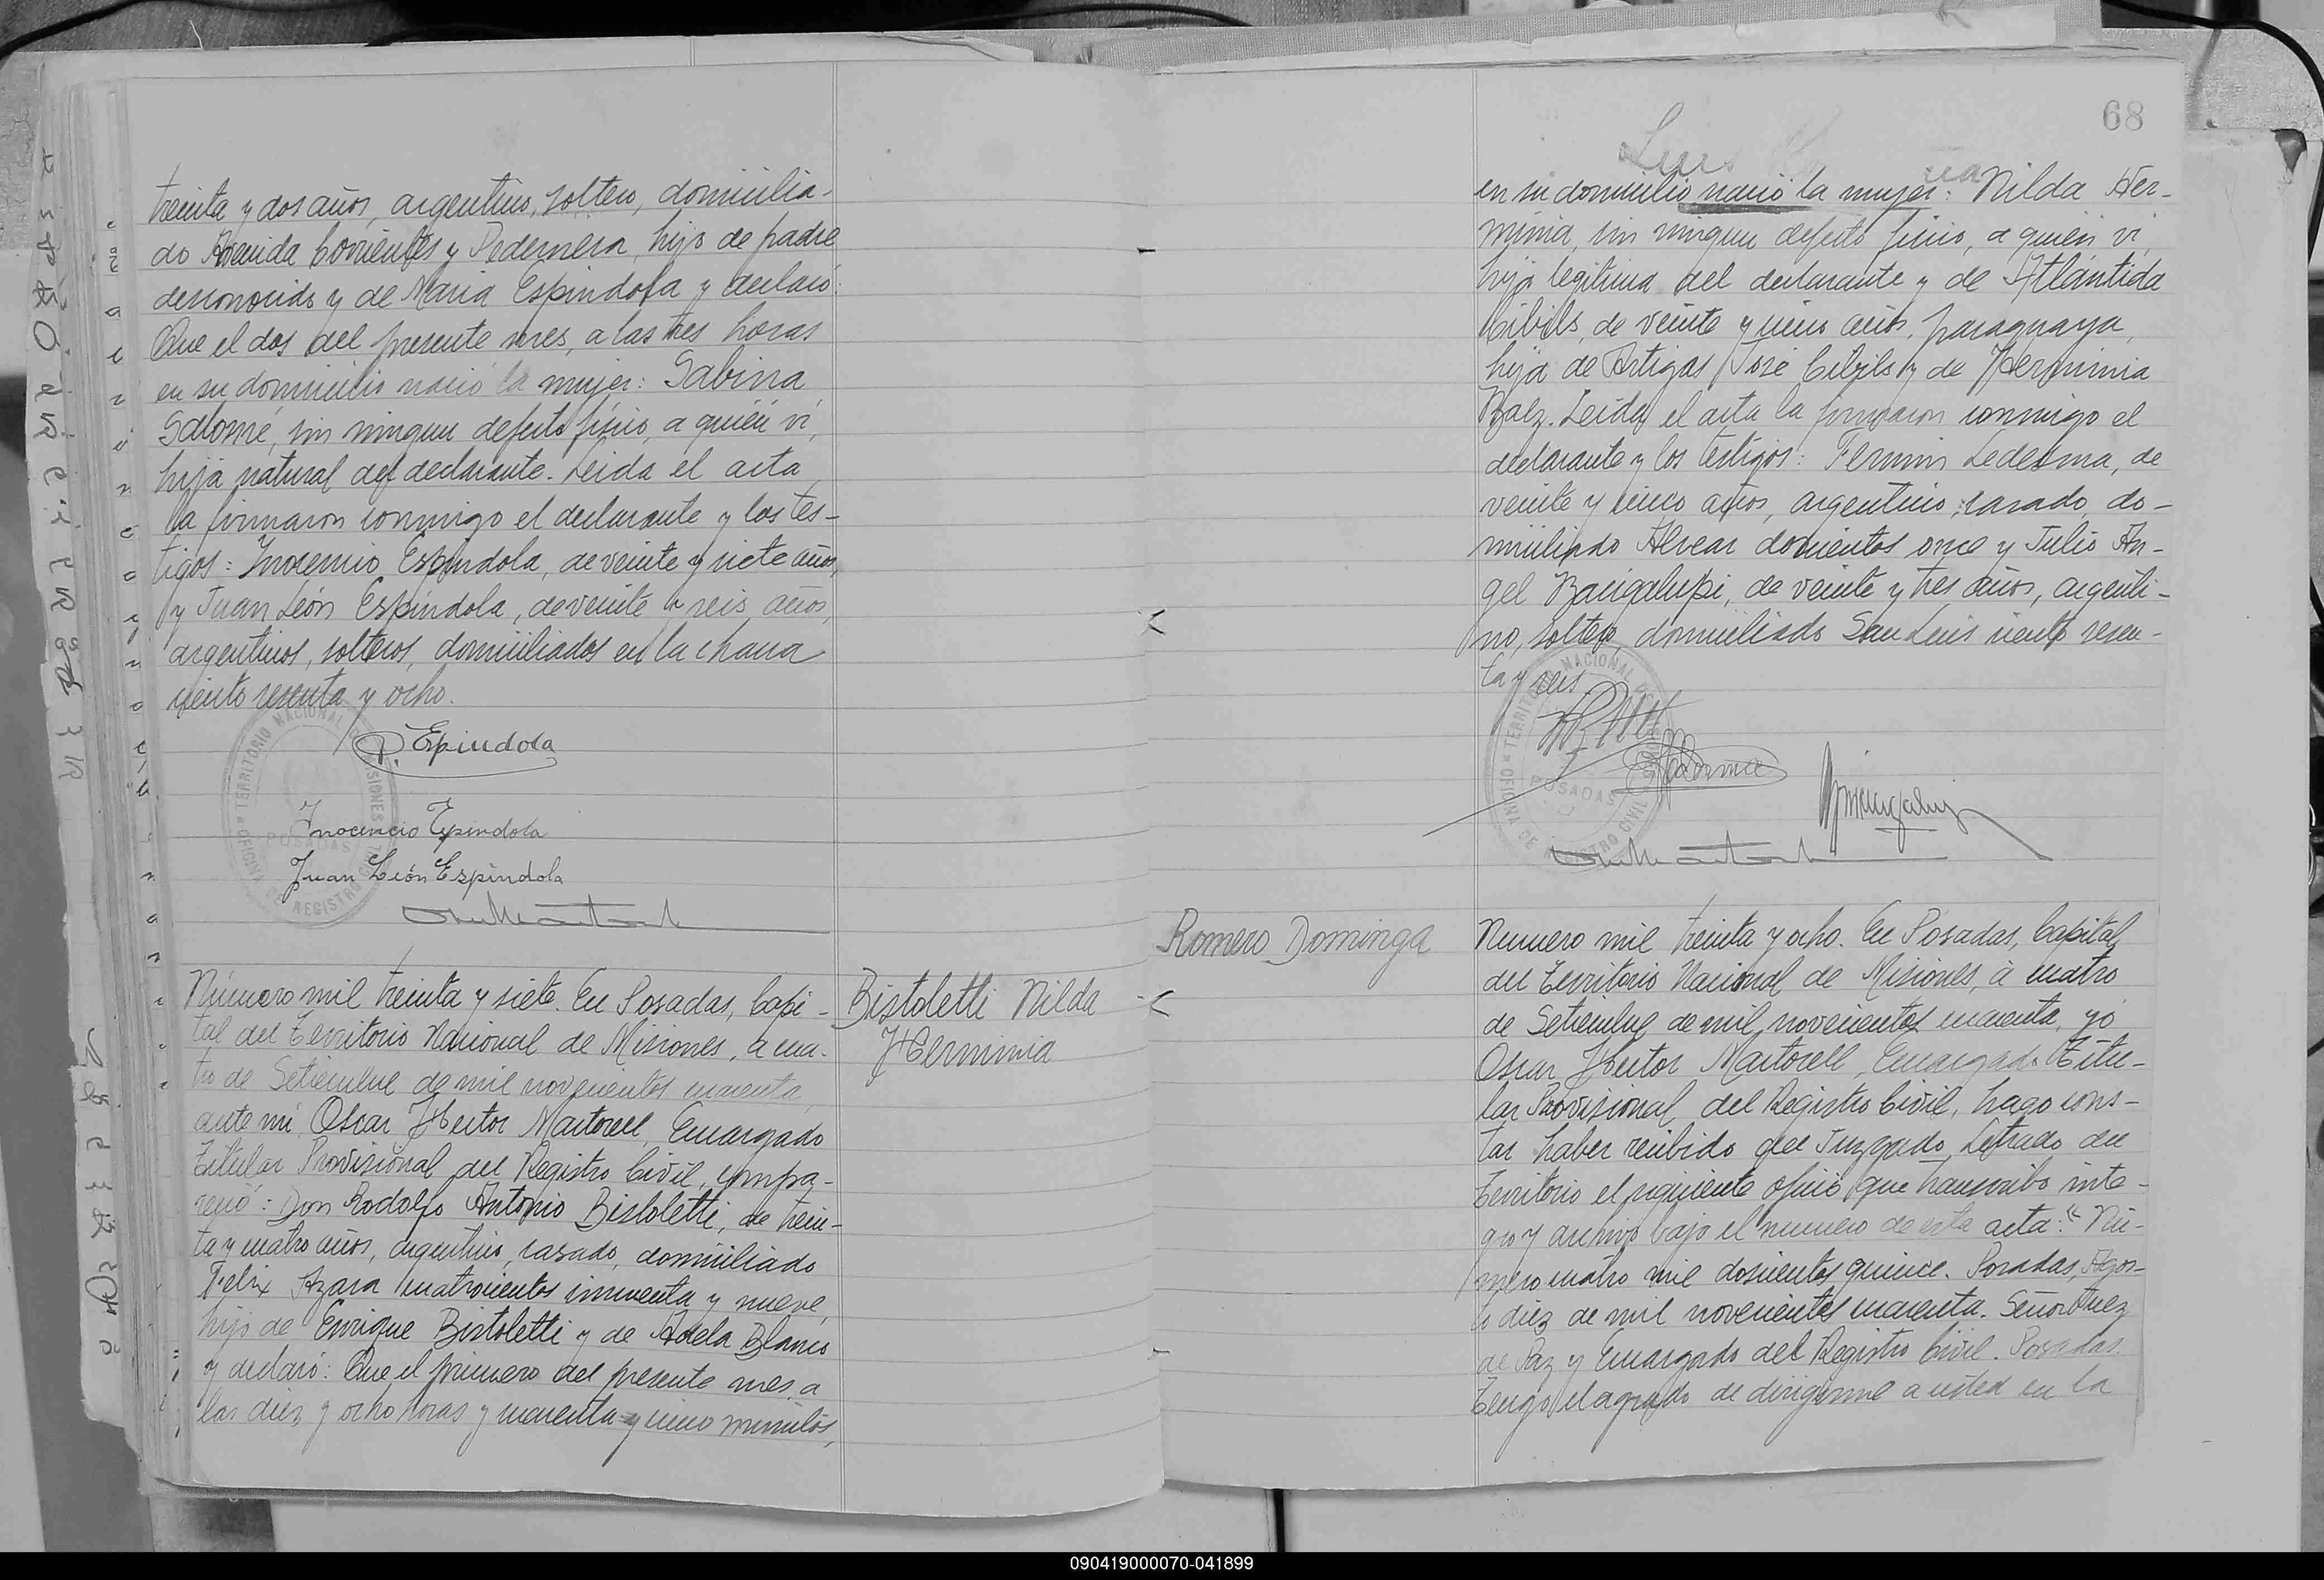 treinta y dos años, argentino, soltero, domicilia-
do Avenida Corrientes y Pedernera, hijo de padre
desconocido y de Maria Espindola y declaró:
Que el dos del presente mes, a las tres horas
en su domicilio nació la mujer: Sabina
Salomé, sin ningun defecto físico, a quién ví,
hija natural del declarante. Leida el acta
la firmaron conmigo el declarante y los tes-
tigos: Inocencio Espindola, de veinte y siete años,
y Juan León Espíndola, de veinte y seis años,
argentinos, solteros, domiciliados en la chacra
ciento sesenta y ocho.
P. Espindola
Inocencio Espindola
Juan León Espíndola
TERRITORIO NACIONAL DE MISIONES
POSADAS
OFICINA DE REGISTRO CIVIL
Número mil treinta y siete. En Posadas, Capi-
tal del Territorio Nacional de Misiones, a cua-
tro de Setiembre de mil novecientos cuarenta,
ante mí Oscar Hector Martorell, Encargado
Titular Provisional del Registro Civil, compa-
reció: Don Rodolfo Antonio Bistoletti, de trein-
ta y cuatro años, argentino, casado, domiciliado
Felix Azara cuatrocientos cincuenta y nueve,
hijo de Enrique Bistoletti y de Adela Blanco
y declaró: Que el primero del presente mes, a
las diez y ocho horas y cuarenta y cinco minutos,
Bistoletti Nilda
Herminia
68
Luis
en su domicilio nació la mujer: Nilda Her-
minia, sin ningun defecto físico, a quién ví,
hija legitima del declarante y de Atlántida
Cibils, de veinte y cinco años, paraguaya,
hija de Artigas José Cibils y de Herminia
Baez. Leida el acta la firmaron conmigo el
declarante y los testigos: Fermin Ledesma, de
veinte y cinco años, argentino, casado, do-
miciliado Alvear doscientos once y Julio An-
gel Bacigalupi, de veinte y tres años, argenti-
no, soltero, domiciliado San Luis ciento sesen-
ta y seis.
TERRITORIO NACIONAL DE MISIONES
POSADAS
OFICINA DE REGISTRO CIVIL
Romero Dominga
Numero mil treinta y ocho. En Posadas, Capital
del Territorio Nacional de Misiones, á cuatro
de Setiembre de mil novecientos cuarenta, yo
Oscar Hector Martorell, Encargado Titu-
lar Provisional del Registro Civil, hago cons-
tar haber recibido del Juzgado Letrado del
Territorio el siguiente oficio que transcribo inte-
gro y archivo bajo el numero de esta acta: "Nú-
mero cuatro mil doscientos quince. Posadas, Agos-
to diez de mil novecientos cuarenta. Señor Juez
de Paz y Encargado del Registro Civil. Posadas.
Tengo el agrado de dirigirme a usted en la
090419000070-041899